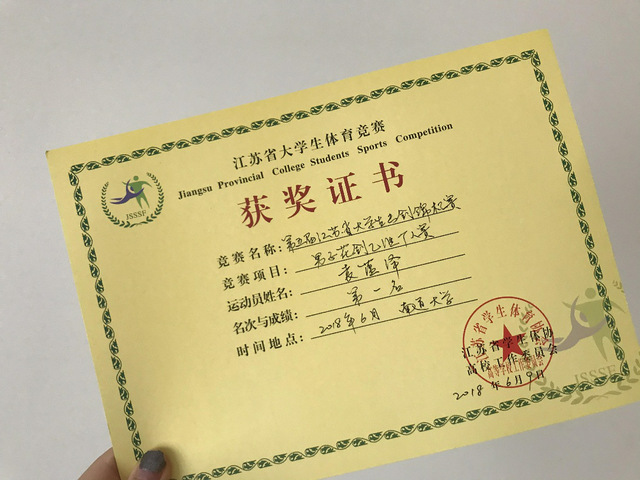 江苏省大学生体育竞赛
Jiangsu Provincial College Students Sports Competition
获奖证书
JSSSF
竞赛名称：第五届江苏省大学生击剑锦标赛
竞赛项目：男子花剑乙组个人赛
运动员姓名：袁蕴泽
名次与成绩：第一名
时间地点：2018年6月 南通大学
江苏省学生体协
高校工作委员会
2018年6月9日
JSSSF